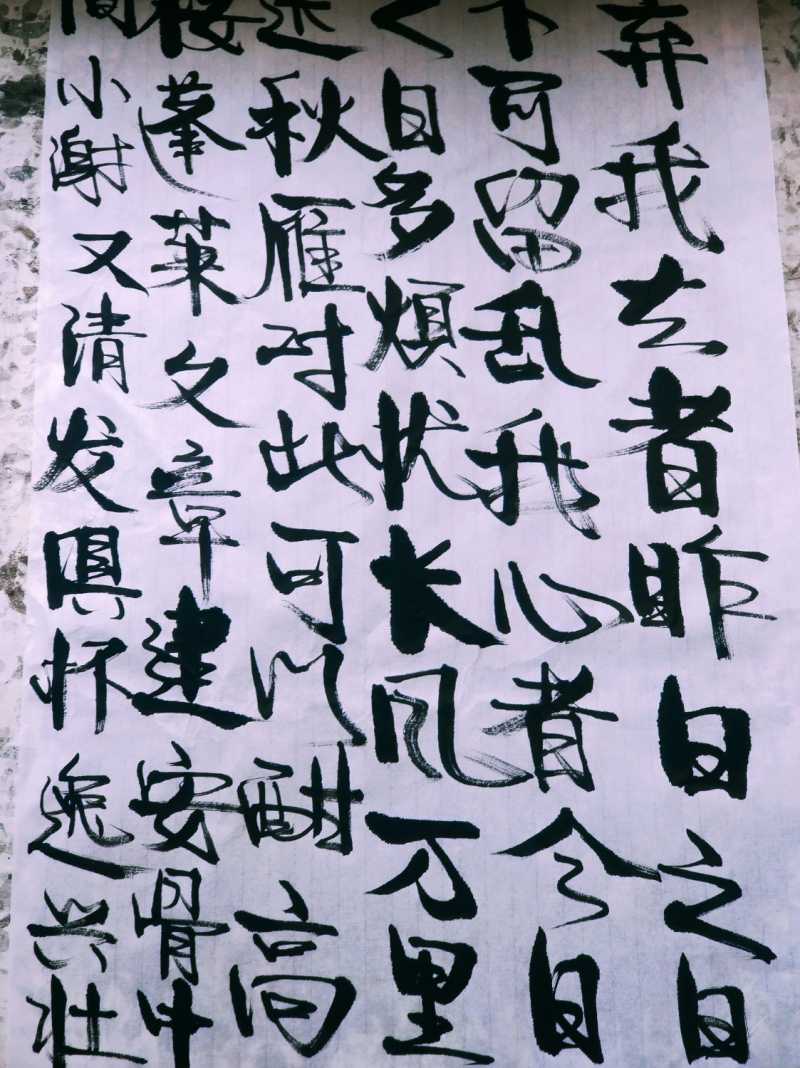 弃我去者昨日之日
不可留乱我心者今日
之日多煩忧长风万里
送秋雁对此可以酣高
楼蓬莱文章建安骨中
间小谢又清发俱怀逸兴壮